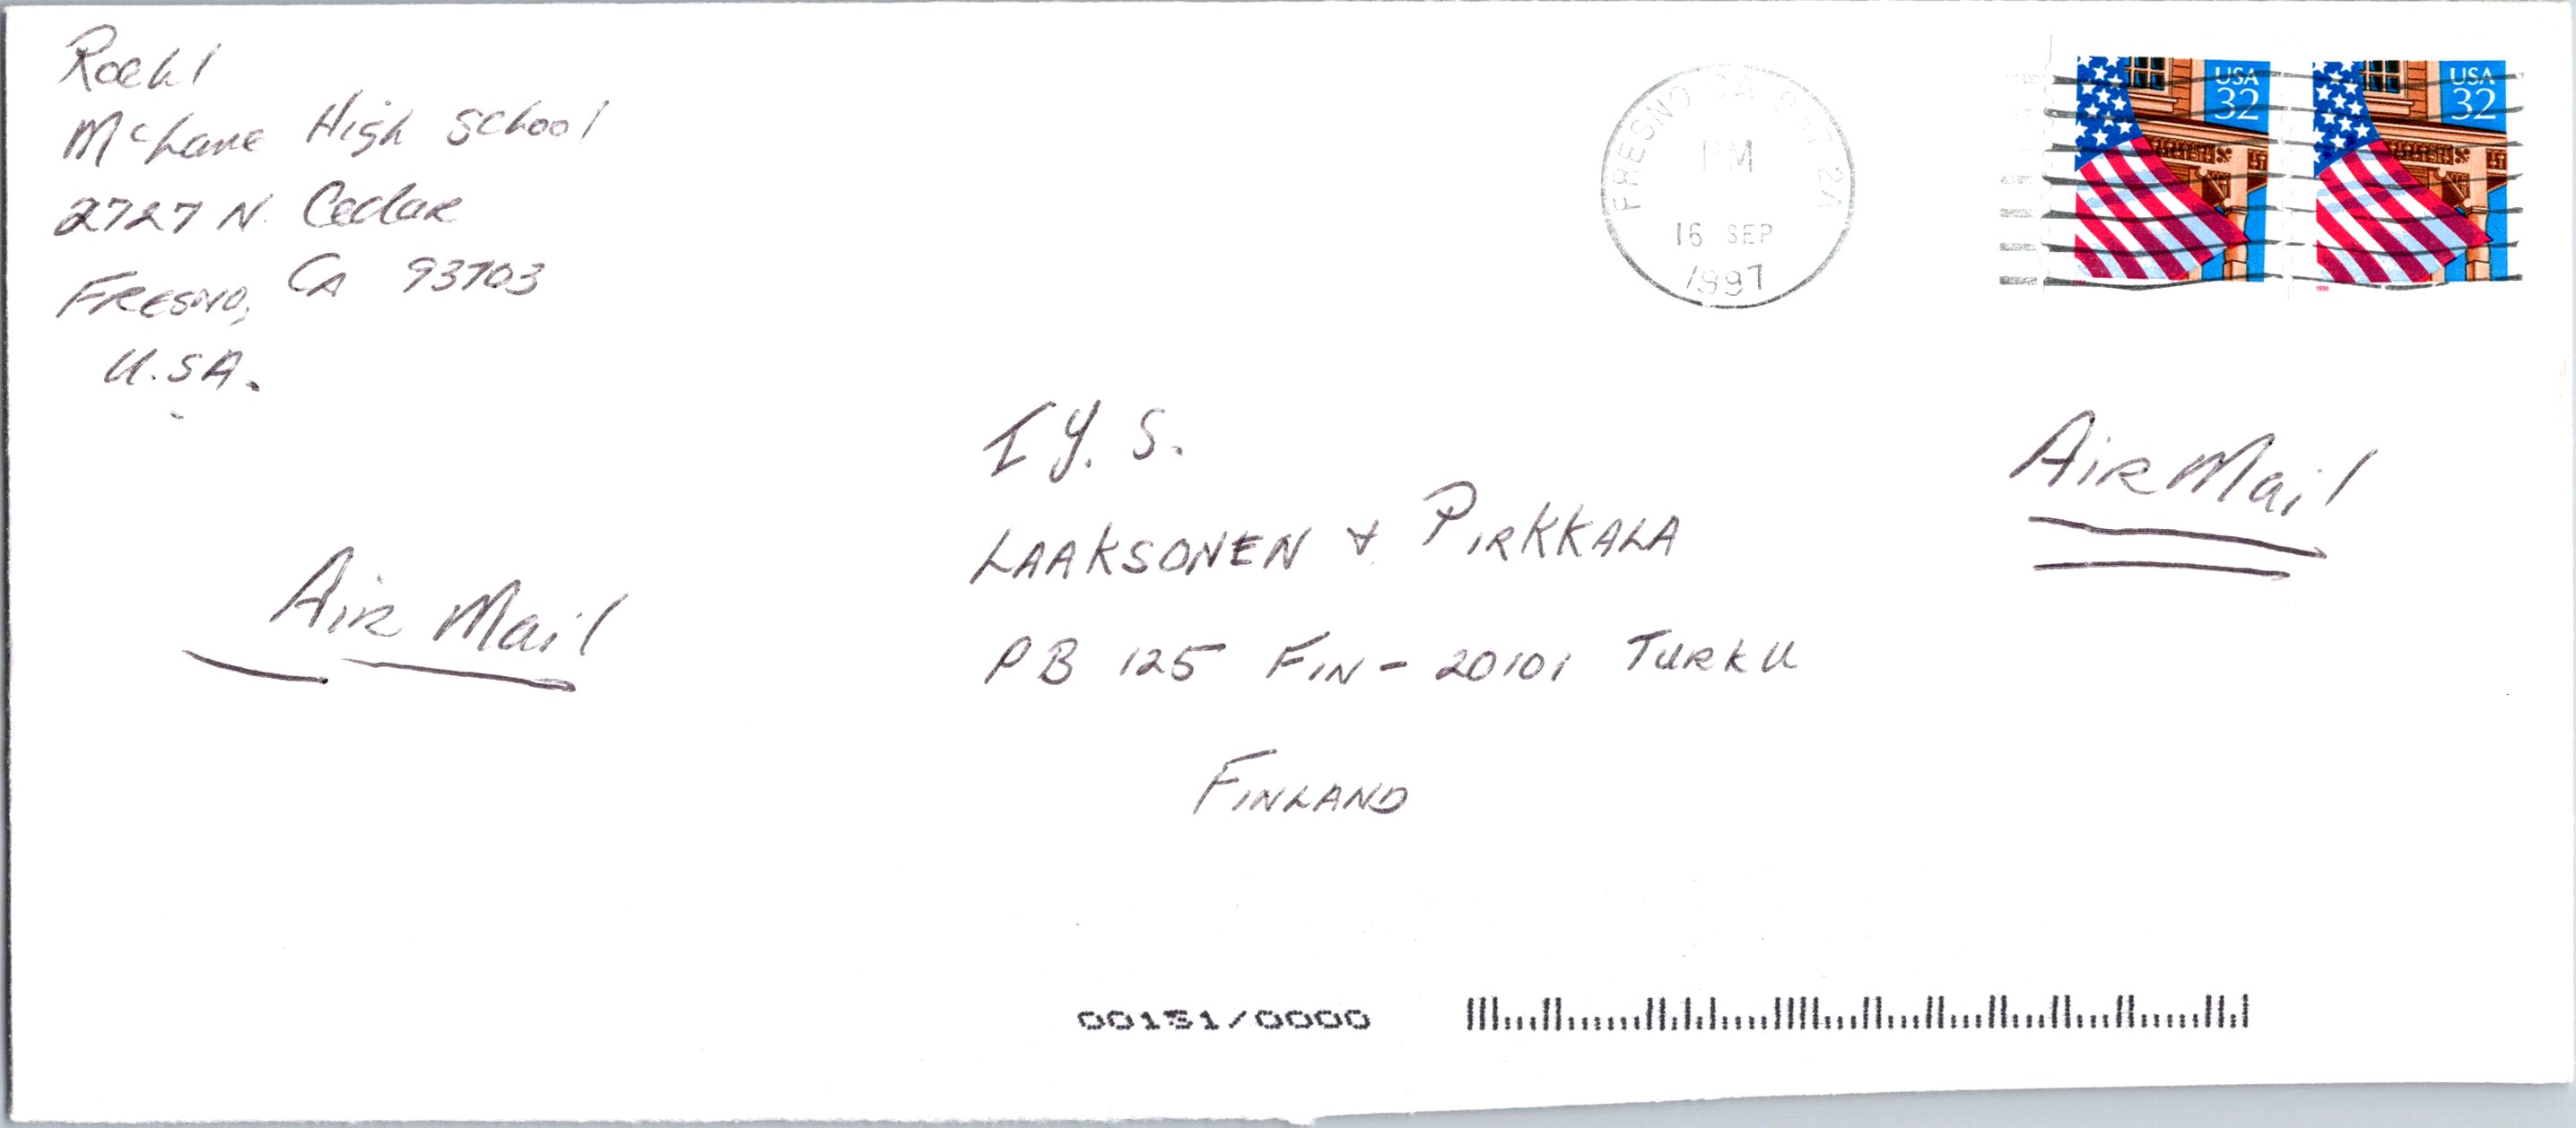 Roehl
McLane High School
2727 N. Cedar
Fresno, CA 93703
U.S.A.
FRESNO CA P&DC 2A
PM
16 SEP
1997
USA
32
USA
32
1996
I.Y.S.
LAAKSONEN + PIRKKALA
PB 125 FIN - 20101 TURKU
FINLAND
Air Mail
Air Mail
00151/0000